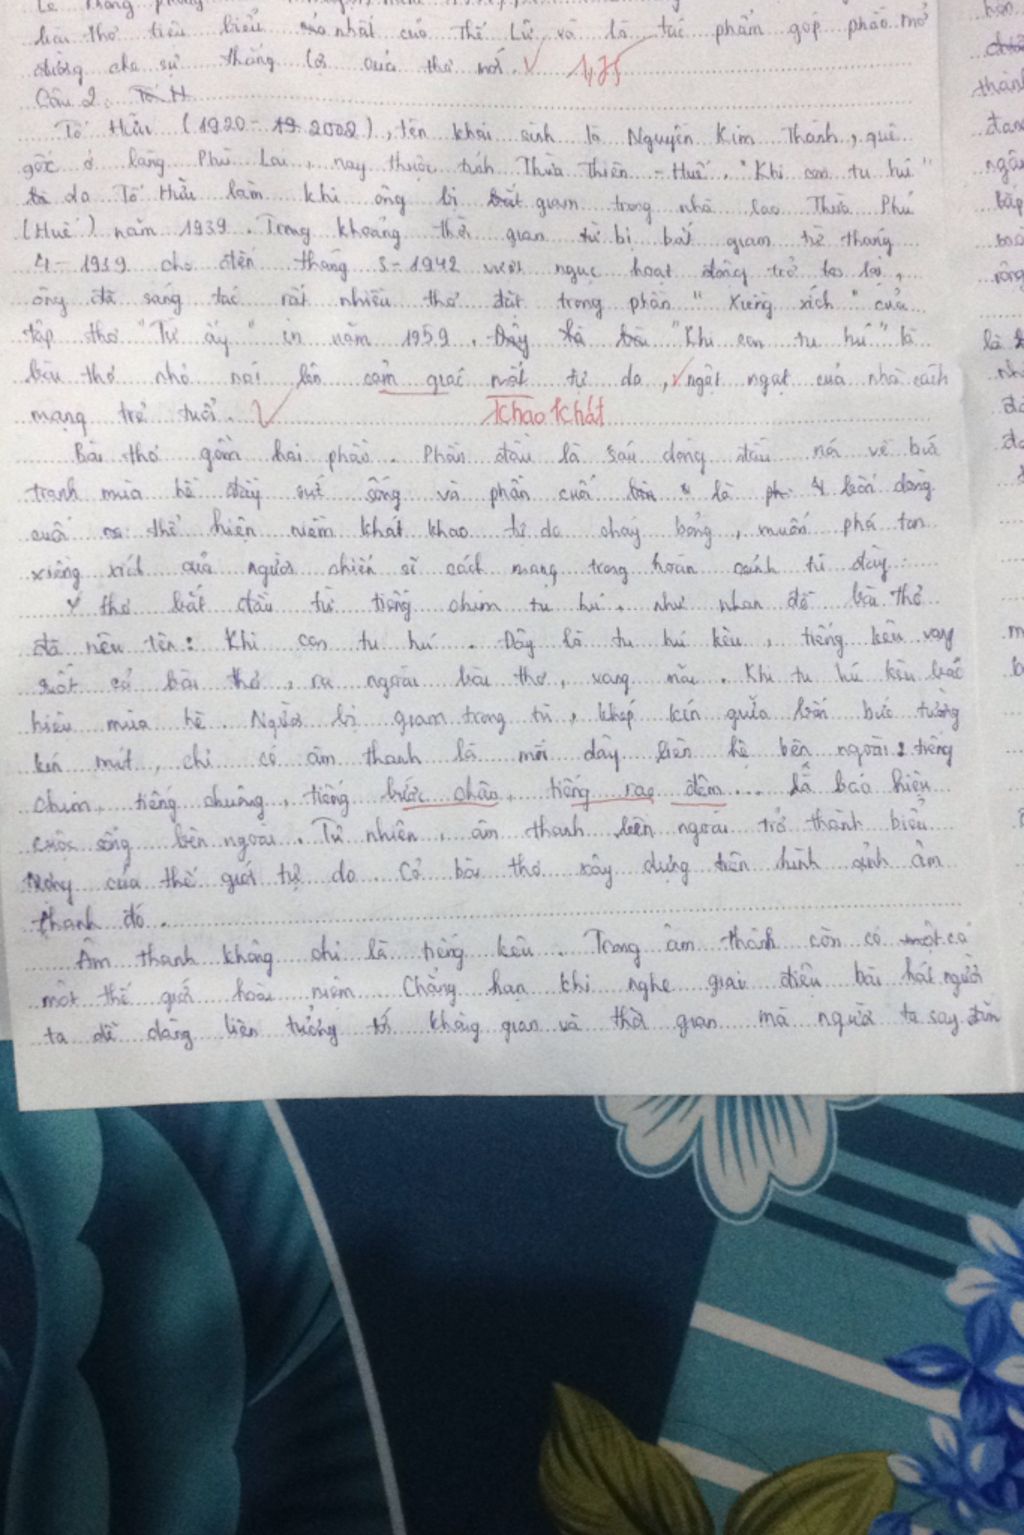 bài thơ tiêu biểu nhất của Thế Lữ và là tác phẩm góp phần mở
đường cho sự thắng lợi của thơ mới. 1,75
Câu 2. Tố H
Tố Hữu (1920 - 19 2002), tên khai sinh là Nguyễn Kim Thành, quê
gốc ở làng Phù Lai, nay thuộc tỉnh Thừa Thiên - Huế. "Khi con tu hú"
do Tố Hữu làm khi ông bị bắt giam trong nhà lao Thừa Phủ
(Huế) năm 1939. Trong khoảng thời gian bị bắt giam từ tháng
4 - 1939 cho đến tháng 3 - 1942 vượt ngục hoạt động trở lại,
ông đã sáng tác rất nhiều thơ đặt trong phần "Xiềng xích" của
tập thơ "Từ ấy" in năm 1959. Đây là bài "Khi con tu hú" là
bài thơ nhỏ nói lên cảm giác mất tự do, ngột ngạt của nhà cách
mạng trẻ tuổi. khao khát
Bài thơ gồm hai phần. Phần đầu là sáu dòng đầu nói về bức
tranh mùa hè đầy sức sống và phần cuối là 4 bốn dòng
cuối thể hiện niềm khát khao tự do cháy bỏng, muốn phá tan
xiềng xích của người chiến sĩ cách mạng trong hoàn cảnh tù đày.
Ý thơ bắt đầu từ tiếng chim tu hú, như nhan đề bài thơ
đã nêu tên: Khi con tu hú. Đây là tu hú kêu, tiếng kêu vang
suốt cả bài thơ, ra ngoài bài thơ, vang mãi. Khi tu hú kêu báo
hiệu mùa hè. Người bị giam trong tù, khép kín giữa bốn bức tường
kín mít, chỉ có âm thanh là mối dây liên hệ bên ngoài: tiếng
chim, tiếng chuông, tiếng bước chân, tiếng rao đêm... là báo hiệu
cuộc sống bên ngoài. Tự nhiên, âm thanh bên ngoài trở thành biểu
tượng của thế giới tự do. Cả bài thơ xây dựng trên hình ảnh âm
thanh đó.
Âm thanh không chỉ là tiếng kêu. Trong âm thanh còn có cả
một thế giới hoài niệm. Chẳng hạn khi nghe giai điệu bài hát người
ta dễ dàng liên tưởng tới không gian và thời gian mà người ta say đắm